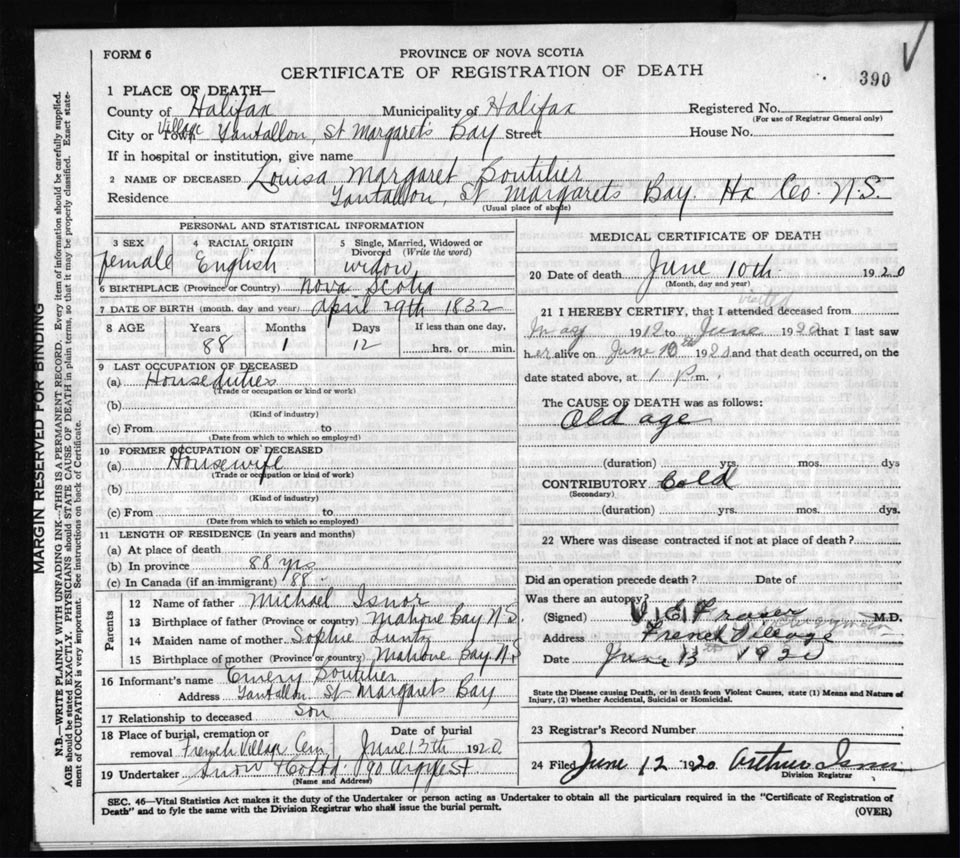 FORM 6
PROVINCE OF NOVA SCOTIA
CERTIFICATE OF REGISTRATION OF DEATH
390
1 PLACE OF DEATH—
County of Halifax Municipality of Halifax Registered No.
(For use of Registrar General only)
City or Town Village Tantallon, St Margaret's Bay Street House No.
If in hospital or institution, give name
2 NAME OF DECEASED Louisa Margaret Boutilier
Residence Tantallon, St Margarets Bay. Hx Co. N.S.
(Usual place of abode)
PERSONAL AND STATISTICAL INFORMATION
3 SEX 4 RACIAL ORIGIN 5 Single, Married, Widowed or Divorced (Write the word)
female English widow
6 BIRTHPLACE (Province or Country) Nova Scotia
7 DATE OF BIRTH (month, day and year) April 29th 1832
8 AGE Years Months Days If less than one day,
88 1 12 hrs. or min.
9 LAST OCCUPATION OF DECEASED
(a) Houseduties
(Trade or occupation or kind of work)
(b)
(Kind of industry)
(c) From to
(Date from which to which so employed)
10 FORMER OCCUPATION OF DECEASED
(a) Housewife
(Trade or occupation or kind of work)
(b)
(Kind of industry)
(c) From to
(Date from which to which so employed)
11 LENGTH OF RESIDENCE (In years and months)
(a) At place of death
(b) In province 88 yrs
(c) In Canada (if an immigrant) 88
Parents
12 Name of father Michael Isnor
13 Birthplace of father (Province or country) Mahone Bay N.S.
14 Maiden name of mother Sophie Luntz
15 Birthplace of mother (Province or country) Mahone Bay N.S
16 Informant's name Emery Boutilier
Address Tantallon St Margarets Bay
17 Relationship to deceased Son
18 Place of burial, cremation or removal French Village Cem Date of burial June 13th 1920
19 Undertaker Snow & Co Ltd 90 Argyle St.
(Name and Address)
MEDICAL CERTIFICATE OF DEATH
20 Date of death June 10th 1920
(Month, day and year)
visited
21 I HEREBY CERTIFY, that I attended deceased from
1912 to June 1920 that I last saw
her alive on June 10th 1920 and that death occurred, on the
date stated above, at 1 P.m.
The CAUSE OF DEATH was as follows:
Old age
(duration) yrs. mos. dys
CONTRIBUTORY Cold
(Secondary)
(duration) yrs. mos. dys.
22 Where was disease contracted if not at place of death?
Did an operation precede death? Date of
Was there an autopsy?
(Signed) E Fraser M.D.
Address French Village
Date June 13th 1920
State the Disease causing Death, or in death from Violent Causes, state (1) Means and Nature of
Injury, (2) whether Accidental, Suicidal or Homicidal.
23 Registrar's Record Number
24 Filed June 12 1920 Arthur Isnor
Division Registrar
SEC. 46—Vital Statistics Act makes it the duty of the Undertaker or person acting as Undertaker to obtain all the particulars required in the "Certificate of Registration of
Death" and to fyle the same with the Division Registrar who shall issue the burial permit.
(OVER)
MARGIN RESERVED FOR BINDING
N.B.—WRITE PLAINLY WITH UNFADING INK—THIS IS A PERMANENT RECORD. Every item of information should be carefully supplied.
AGE should be stated EXACTLY. PHYSICIANS should STATE CAUSE OF DEATH in plain terms, so that it may be properly classified. Exact state-
ment of OCCUPATION is very important. See instructions on back of Certificate.